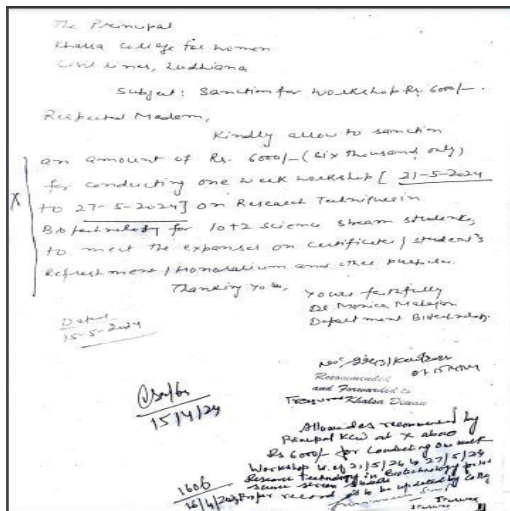 The Principal
Khalsa College for Women
Civil Lines, Ludhiana
Subject: Sanction for Workshop Rs. 6000/-.
Respected Madam,
Kindly allow to sanction
an amount of Rs. 6000/- (Six thousand only)
for conducting one week workshop [21-5-2024
X
to 27-5-2024] on Research Techniques in
Biotechnology for 10+2 science stream students,
to meet the expenses on certificate / student's
Refreshment / Honorarium and other purpose.
Thanking You,
Yours faithfully
Dr Monica Mahajan
Department Biotechnology.
Dated
15-5-2024
Recommended
and Forwarded to
Treasurer Khalsa Diwan
15/4/24
Allowed as recommended by
Principal KCW at X above
Rs 6000/- for Conducting One week
Workshop w.ef 21/5/24 to 27/5/24
Research Technology in Biotechnology for
Science stream
1606
16/4/24
Proper record to be updated by